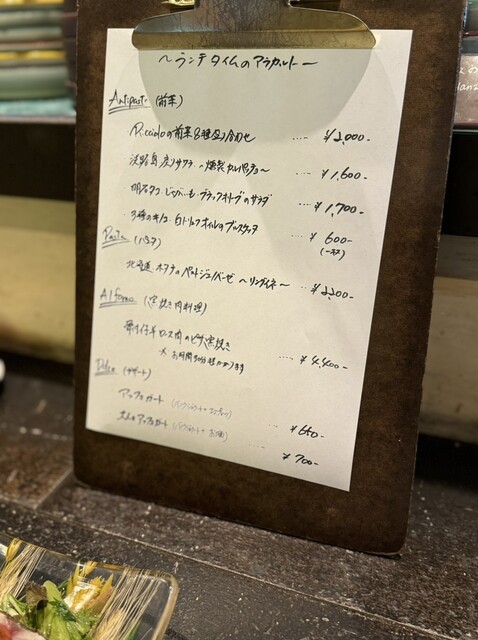 ～ランチタイムのアラカルト～
Antipasto (前菜)
Riccioloの前菜8種盛り合わせ ‥‥ ¥2,000-
淡路島産サワラの燻製カルパッチョ ‥‥ ¥1,600-
明石タコ じゃがいも ブラックオリーブのサラダ ‥‥ ¥1,700-
3種のキノコ 白トリュフオイルのブルスケッタ ‥‥ ¥600-
Pasta (パスタ)
北海道 ホタテの ジェノベーゼ ～リングイネ～ ‥‥ ¥2,200-
Al forno (窯焼き肉料理)
骨付仔羊ロース肉のピザ窯焼き ‥‥ ¥4,400-
※お時間30分程かかります
Dolce (デザート)
アッフォガート ¥650-
大人のアッフォガート ‥‥ ¥700-